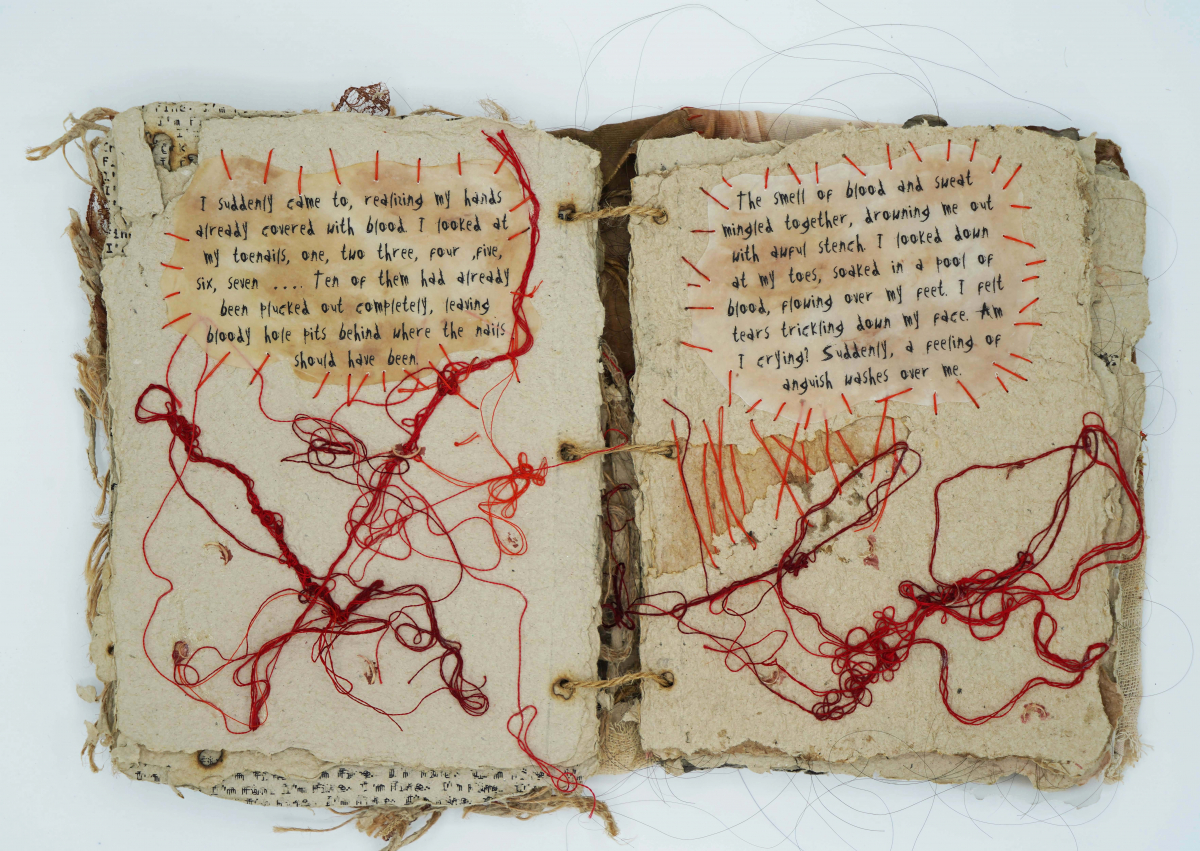 I suddenly came to, realizing my hands
already covered with blood. I looked at
my toenails, one, two three, four ,five,
six, seven .... Ten of them had already
been plucked out completely, leaving
bloody hole pits behind where the nails
should have been.
The smell of blood and sweat
mingled together, drowning me out
with awful stench. I looked down
at my toes, soaked in a pool of
blood, flowing over my feet. I felt
tears trickling down my face. Am
I crying? Suddenly, a feeling of
anguish washes over me.